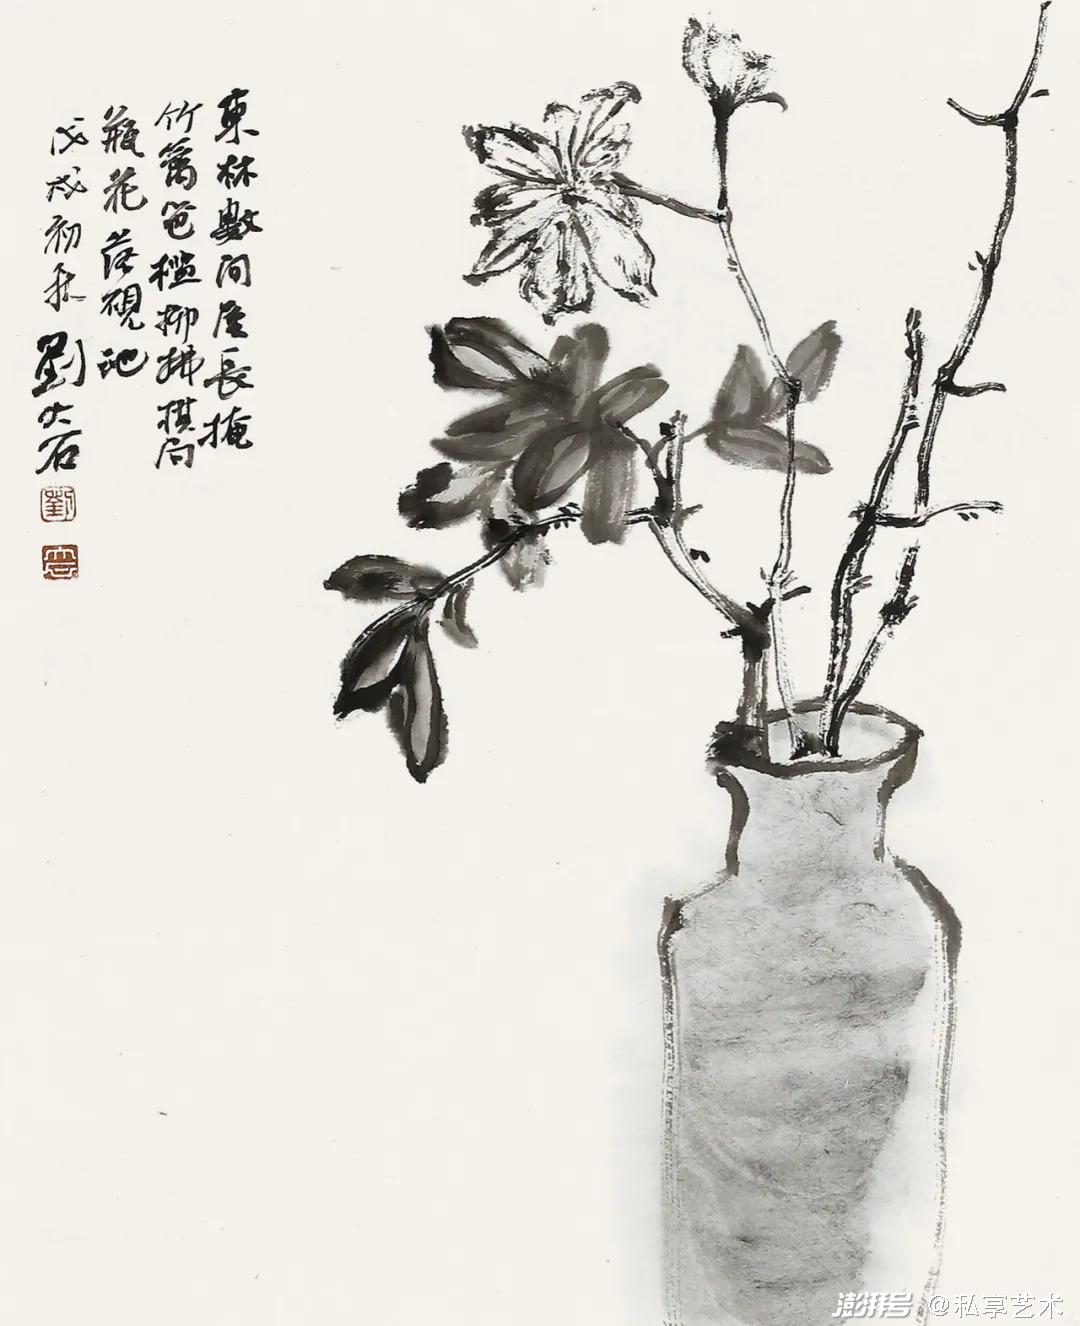 東林數间屋長掩
竹篱笆槛柳拂棋局
瓶花落硯池
戊戌初秋 劉大石
劉
澎湃号 @私享艺术